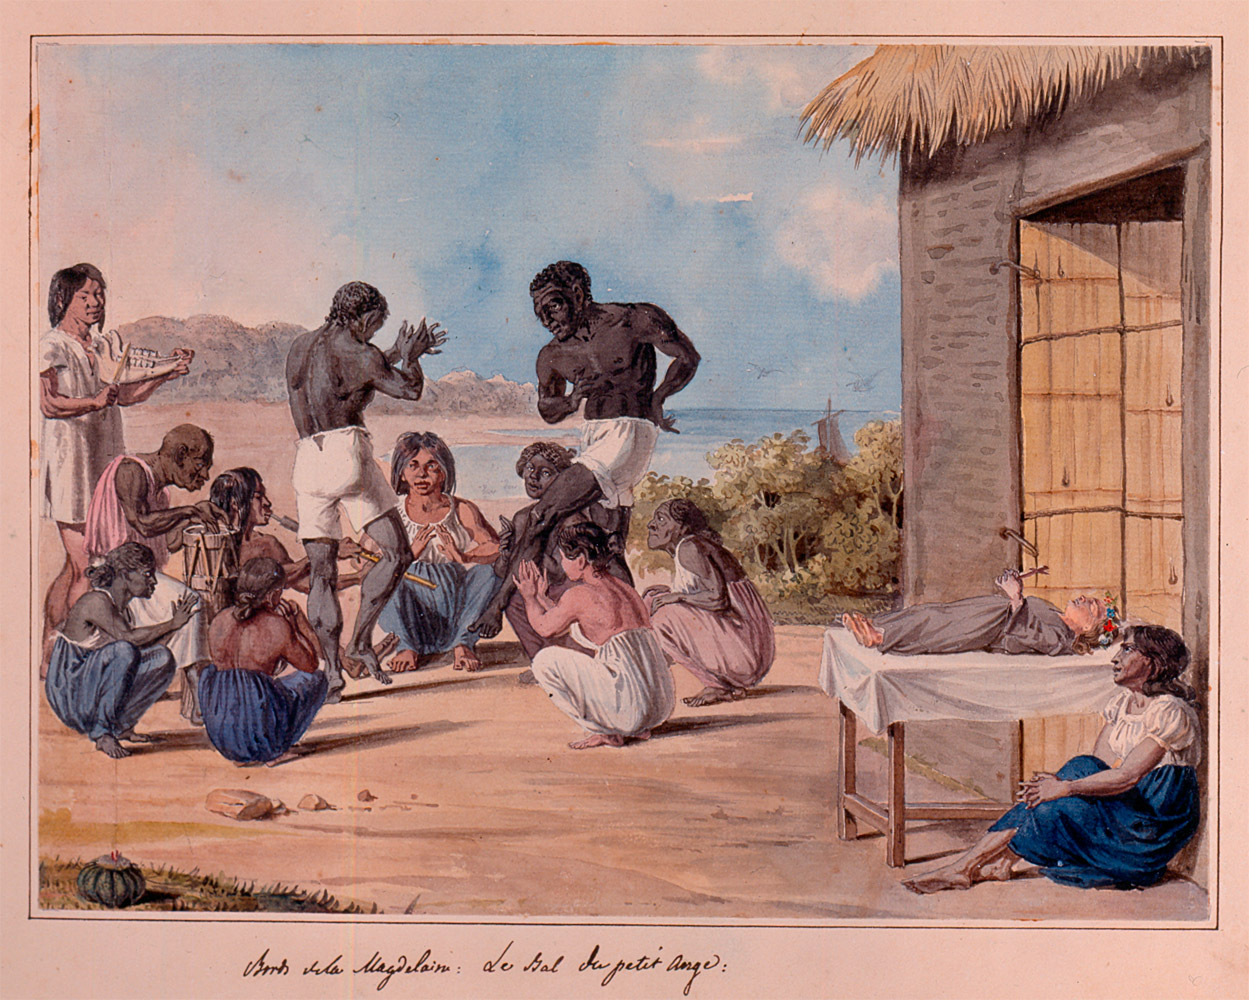 Bords de la Magdelaine: Le Bal du petit Ange: